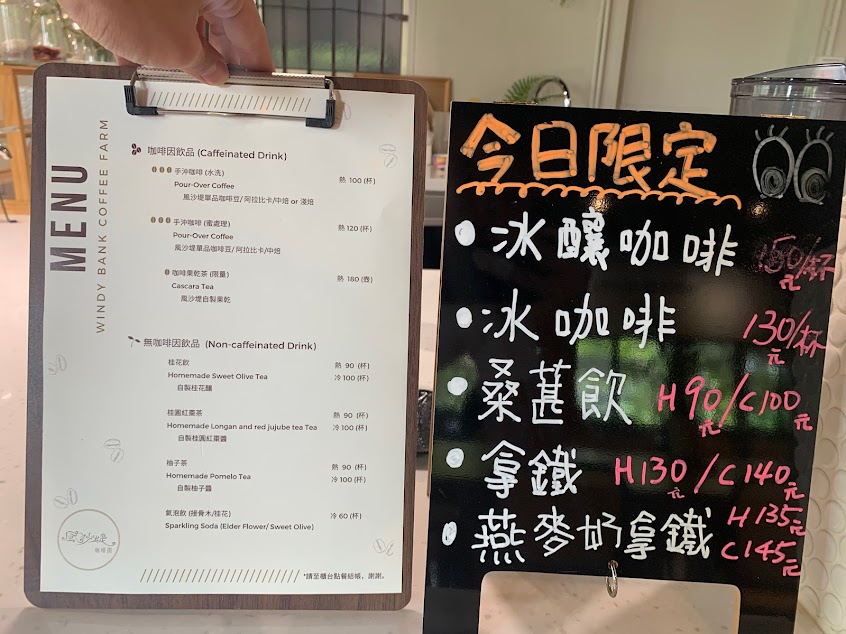 MENU
WINDY BANK COFFEE FARM
咖啡因飲品 (Caffeinated Drink)
手沖咖啡 (水洗) 熱 100 (杯)
Pour-Over Coffee
風沙堤單品咖啡豆/ 阿拉比卡/中焙 or 淺焙
手沖咖啡 (蜜處理) 熱 120 (杯)
Pour-Over Coffee
風沙堤單品咖啡豆/ 阿拉比卡/中焙
咖啡果乾茶 (限量) 熱 180 (壺)
Cascara Tea
風沙堤自製果乾
無咖啡因飲品 (Non-caffeinated Drink)
桂花飲 熱 90 (杯)
Homemade Sweet Olive Tea 冷 100 (杯)
自製桂花釀
桂圓紅棗茶 熱 90 (杯)
Homemade Longan and red jujube tea Tea 冷 100 (杯)
自製桂圓紅棗醬
柚子茶 熱 90 (杯)
Homemade Pomelo Tea 冷 100 (杯)
自製柚子醬
氣泡飲 (接骨木/桂花) 冷 60 (杯)
Sparkling Soda (Elder Flower/ Sweet Olive)
咖啡園
*請至櫃台點餐結帳，謝謝。
今日限定
冰釀咖啡 150元/杯
冰咖啡 130元/杯
桑葚飲 H90元/C100元
拿鐵 H130元/C140元
燕麥奶拿鐵 H135元
C145元